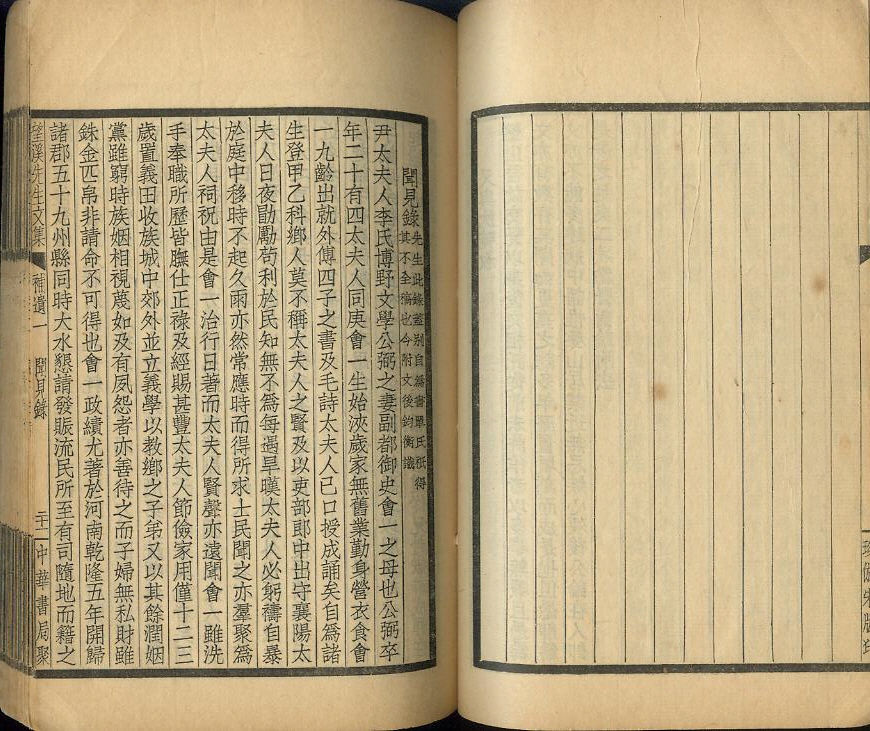 珍倣宋版印
聞見錄
先生此錄蓋別自爲書單氏秖得
其不全稿也今附文後鈞衡識
尹太夫人李氏博野文學公弼之妻副都御史會一之母也公弼卒
年二十有四太夫人同庚會一生始浹歲家無舊業勤身營衣食會
一九齡出就外傅四子之書及毛詩太夫人已口授成誦矣自爲諸
生登甲乙科鄉人莫不稱太夫人之賢及以吏部郎中出守襄陽太
夫人日夜勖勵苟利於民知無不爲每遇旱暵太夫人必躬禱自暴
於庭中移時不起久雨亦然常應時而得所求士民聞之亦羣聚爲
太夫人祠祝由是會一治行日著而太夫人賢聲亦遠聞會一雖洗
手奉職所歷皆膴仕正祿及經賜甚豐太夫人節儉家用僅十二三
歲置義田收族城中郊外並立義學以教鄉之子弟又以其餘潤姻
黨雖窮時族姻相視蔑如及有夙怨者亦善待之而子婦無私財雖
銖金匹帛非請命不可得也會一政績尤著於河南乾隆五年開歸
諸郡五十九州縣同時大水懇請發賑流民所至有司隨地而籍之
望溪先生文集 補遺一 聞見錄 二十一 中華書局聚